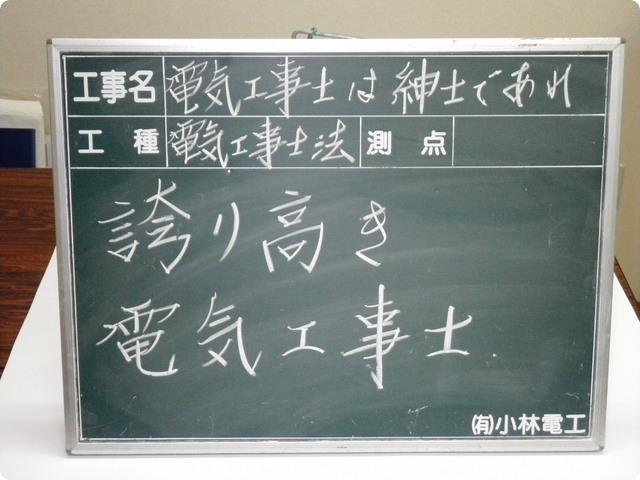 工事名 電気工事士は紳士であれ
工種 電気工事士法 測点
誇り高き
電気工事士
(有)小林電工